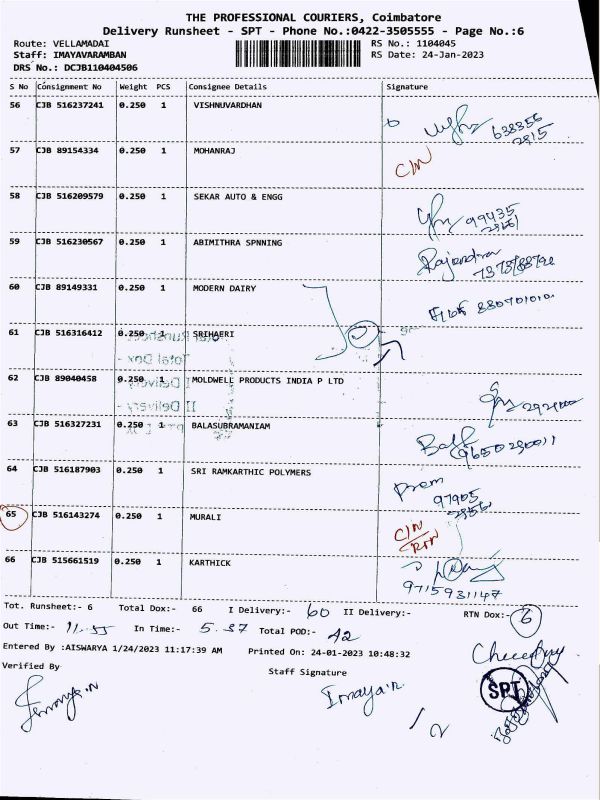 THE PROFESSIONAL COURIERS, Coimbatore
Delivery Runsheet - SPT - Phone No.:0422-3505555 - Page No.:6
Route: VELLAMADAI RS No.: 1104045
Staff: IMAYAVARAMBAN RS Date: 24-Jan-2023
DRS No.: DCJB110404506
S No Consignment No Weight PCS Consignee Details Signature
56 CJB 516237241 0.250 1 VISHNUVARDHAN 638356
2815
57 CJB 89154334 0.250 1 MOHANRAJ C/N
58 CJB 516209579 0.250 1 SEKAR AUTO & ENGG 99435
59 CJB 516230567 0.250 1 ABIMITHRA SPNNING Rajendra
60 CJB 89149331 0.250 1 MODERN DAIRY
61 CJB 516316412 0.250 1 SRIHAERI
62 CJB 89040458 0.250 1 MOLDWELL PRODUCTS INDIA P LTD
63 CJB 516327231 0.250 1 BALASUBRAMANIAM
64 CJB 516187903 0.250 1 SRI RAMKARTHIC POLYMERS Prem
97905
65 CJB 516143274 0.250 1 MURALI C/N
RTN
66 CJB 515661519 0.250 1 KARTHICK
9715931147
Tot. Runsheet:- 6 Total Dox:- 66 I Delivery:- 60 II Delivery:- RTN Dox:- 6
Out Time:- 11.55 In Time:- 5.37 Total POD:- 42
Entered By :AISWARYA 1/24/2023 11:17:39 AM Printed On: 24-01-2023 10:48:32
Verified By Staff Signature
Imaya.n Imaya.n SPT